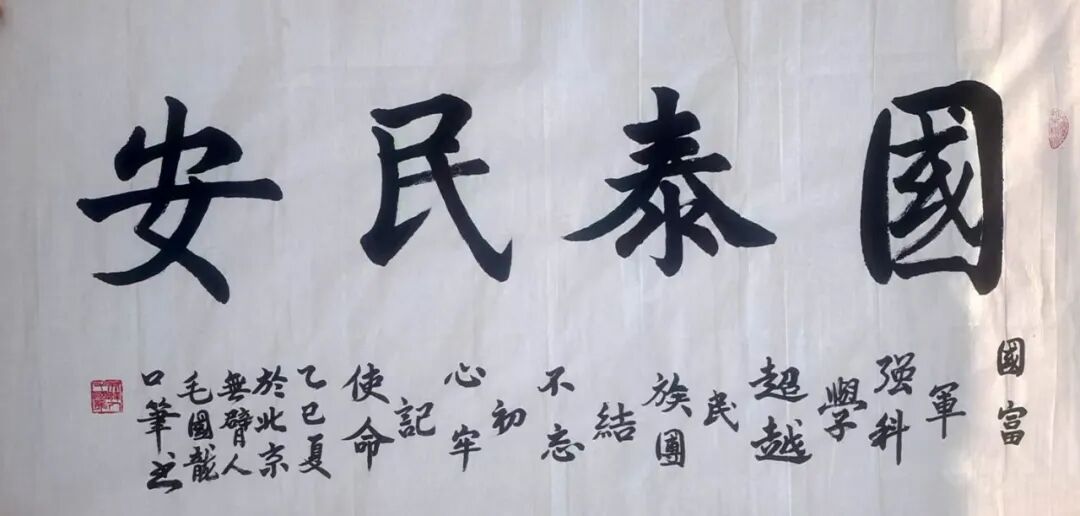 國泰民安
國富
軍
强科
學
超越
民
族團
結
不忘
初
心牢
記
使命
乙巳夏
於北京
無臂人
毛國龍
口筆书